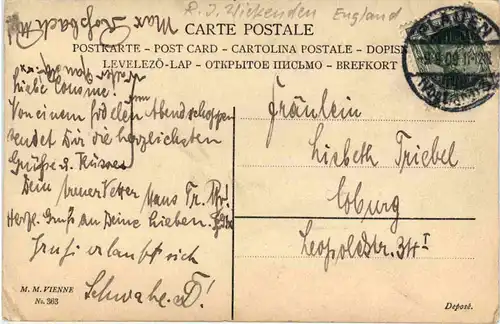 R. J. Wickenden England
Max Roßbach
CARTE POSTALE
POSTKARTE - POST CARD - CARTOLINA POSTALE - DOPISN
LEVELEZŐ-LAP - ОТКРЫТОЕ ПИСЬМО - BREFKORT
PLAUEN
9.09 11-12
Liebe Cousine!
Von einem fidelen Abendschoppen
sendet Dir die herzlichsten
Grüße u. Küsse
Dein treuer Vetter Hans Tr.
Herzl. Gruß an Deine Lieben.
Gruß erlaubt sich
Schwabe
Fräulein
Lisbeth Triebel
Coburg
Leopoldstr. 34 I
M. M. VIENNE
No. 363
Deposé.